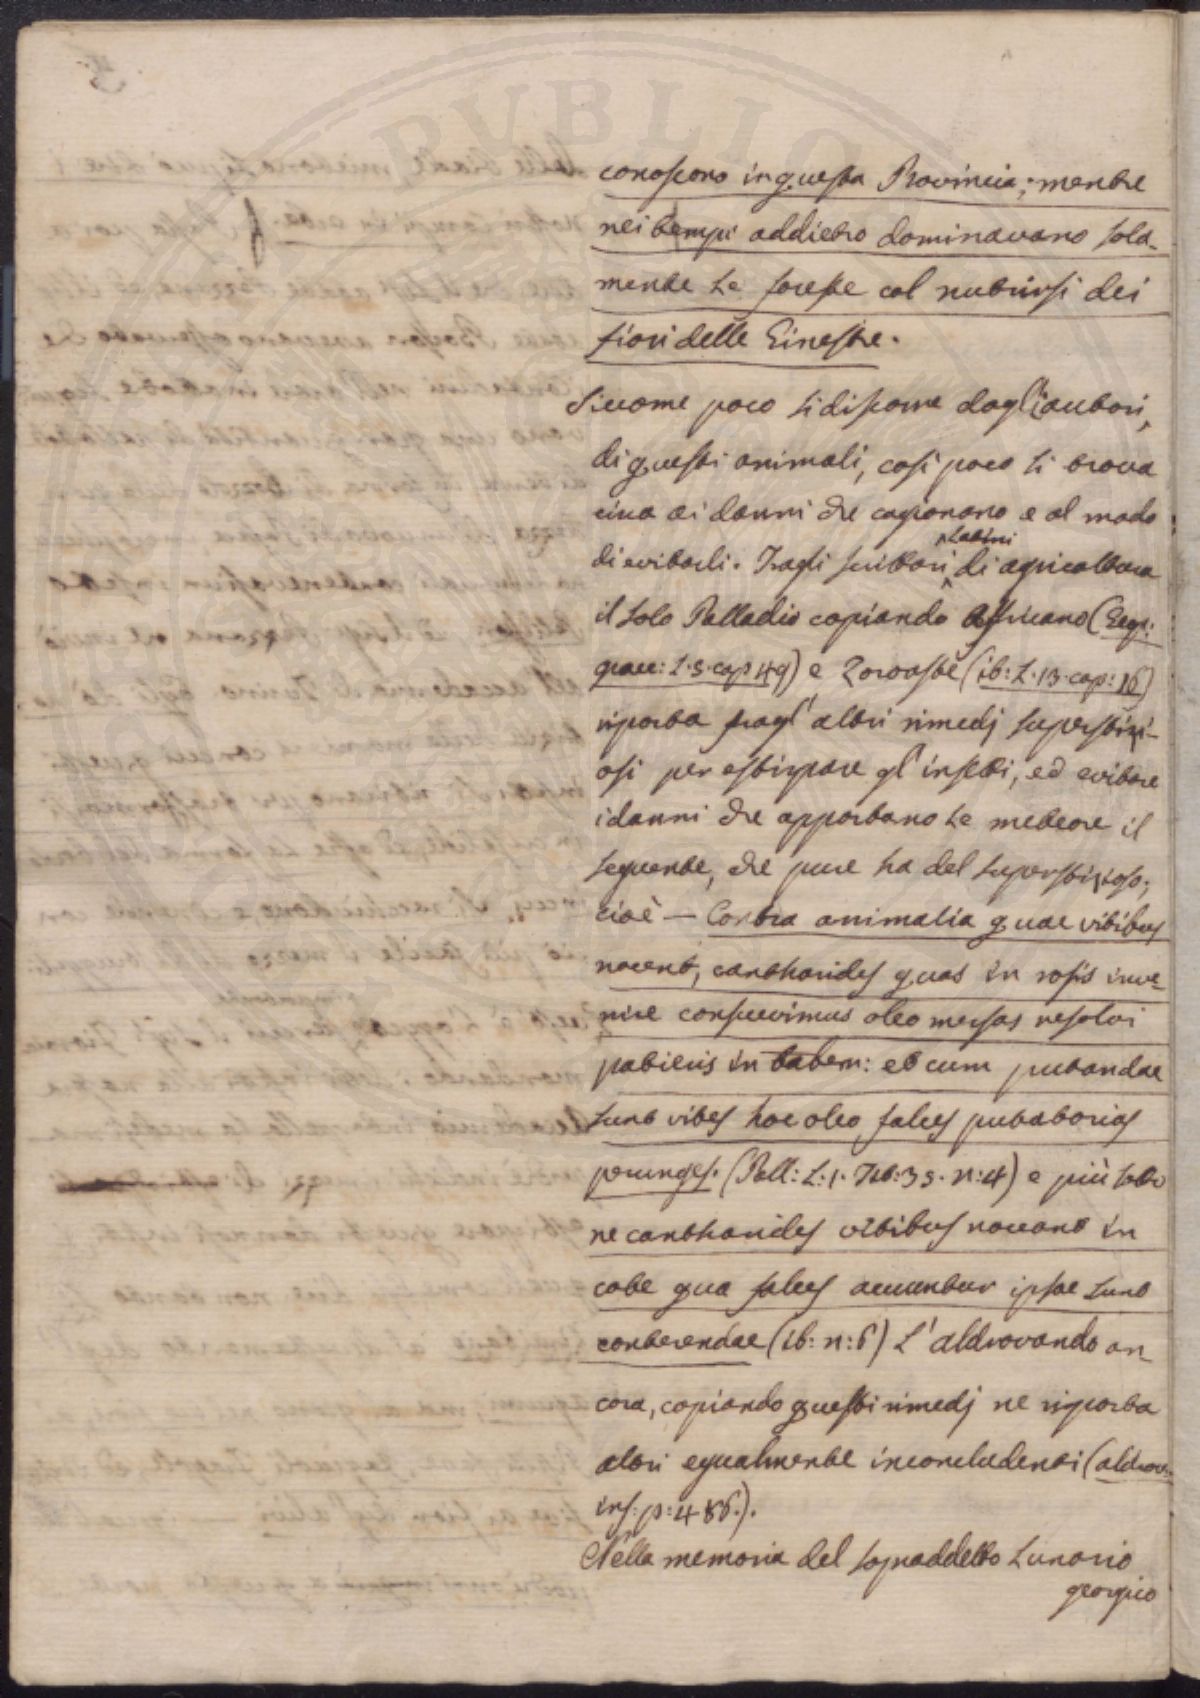 PUBLIC
conoscono in questa Provincia; mentre
nei tempi addietro dominavano sola-
mente le foreste col nutrirsi dei
fiori delle Ginestre.
Siccome poco si discorre dagli autori,
di questi animali, così poco si trova
circa ai danni che cagionano e al modo
di evitarli. Tragli scrittori latini di agricoltura
il solo Palladio copiando Africano (Geop:
graec: L. 5. cap 49) e Zoroastre (ib: L. 13. cap: 16)
riporta fragl' altri rimedj superstizi-
osi per estirpare gl' insetti, ed evitare
i danni che apportano le meteore il
seguente, che pure ha del superstizioso;
cioè — Contra animalia quae vitibus
nocent, cantharides quas in rosis inve-
nire consuevimus oleo mersas resolvi
patieris in tabem: et cum putandae
sunt vites hoc oleo falces putatorias
perunges. (Pall: L: 1. Tit: 35. n: 4) e più sotto
ne cantharides vitibus noceant in
cote qua falces acuuntur ipsae sunt
conterendae (ib: n: 6) L' Aldrovando an-
cora, copiando questi rimedj ne riporta
altri egualmente inconcludenti (aldrov:
ins: p: 486.).
Nella memoria del sopraddetto Lunario
georgico